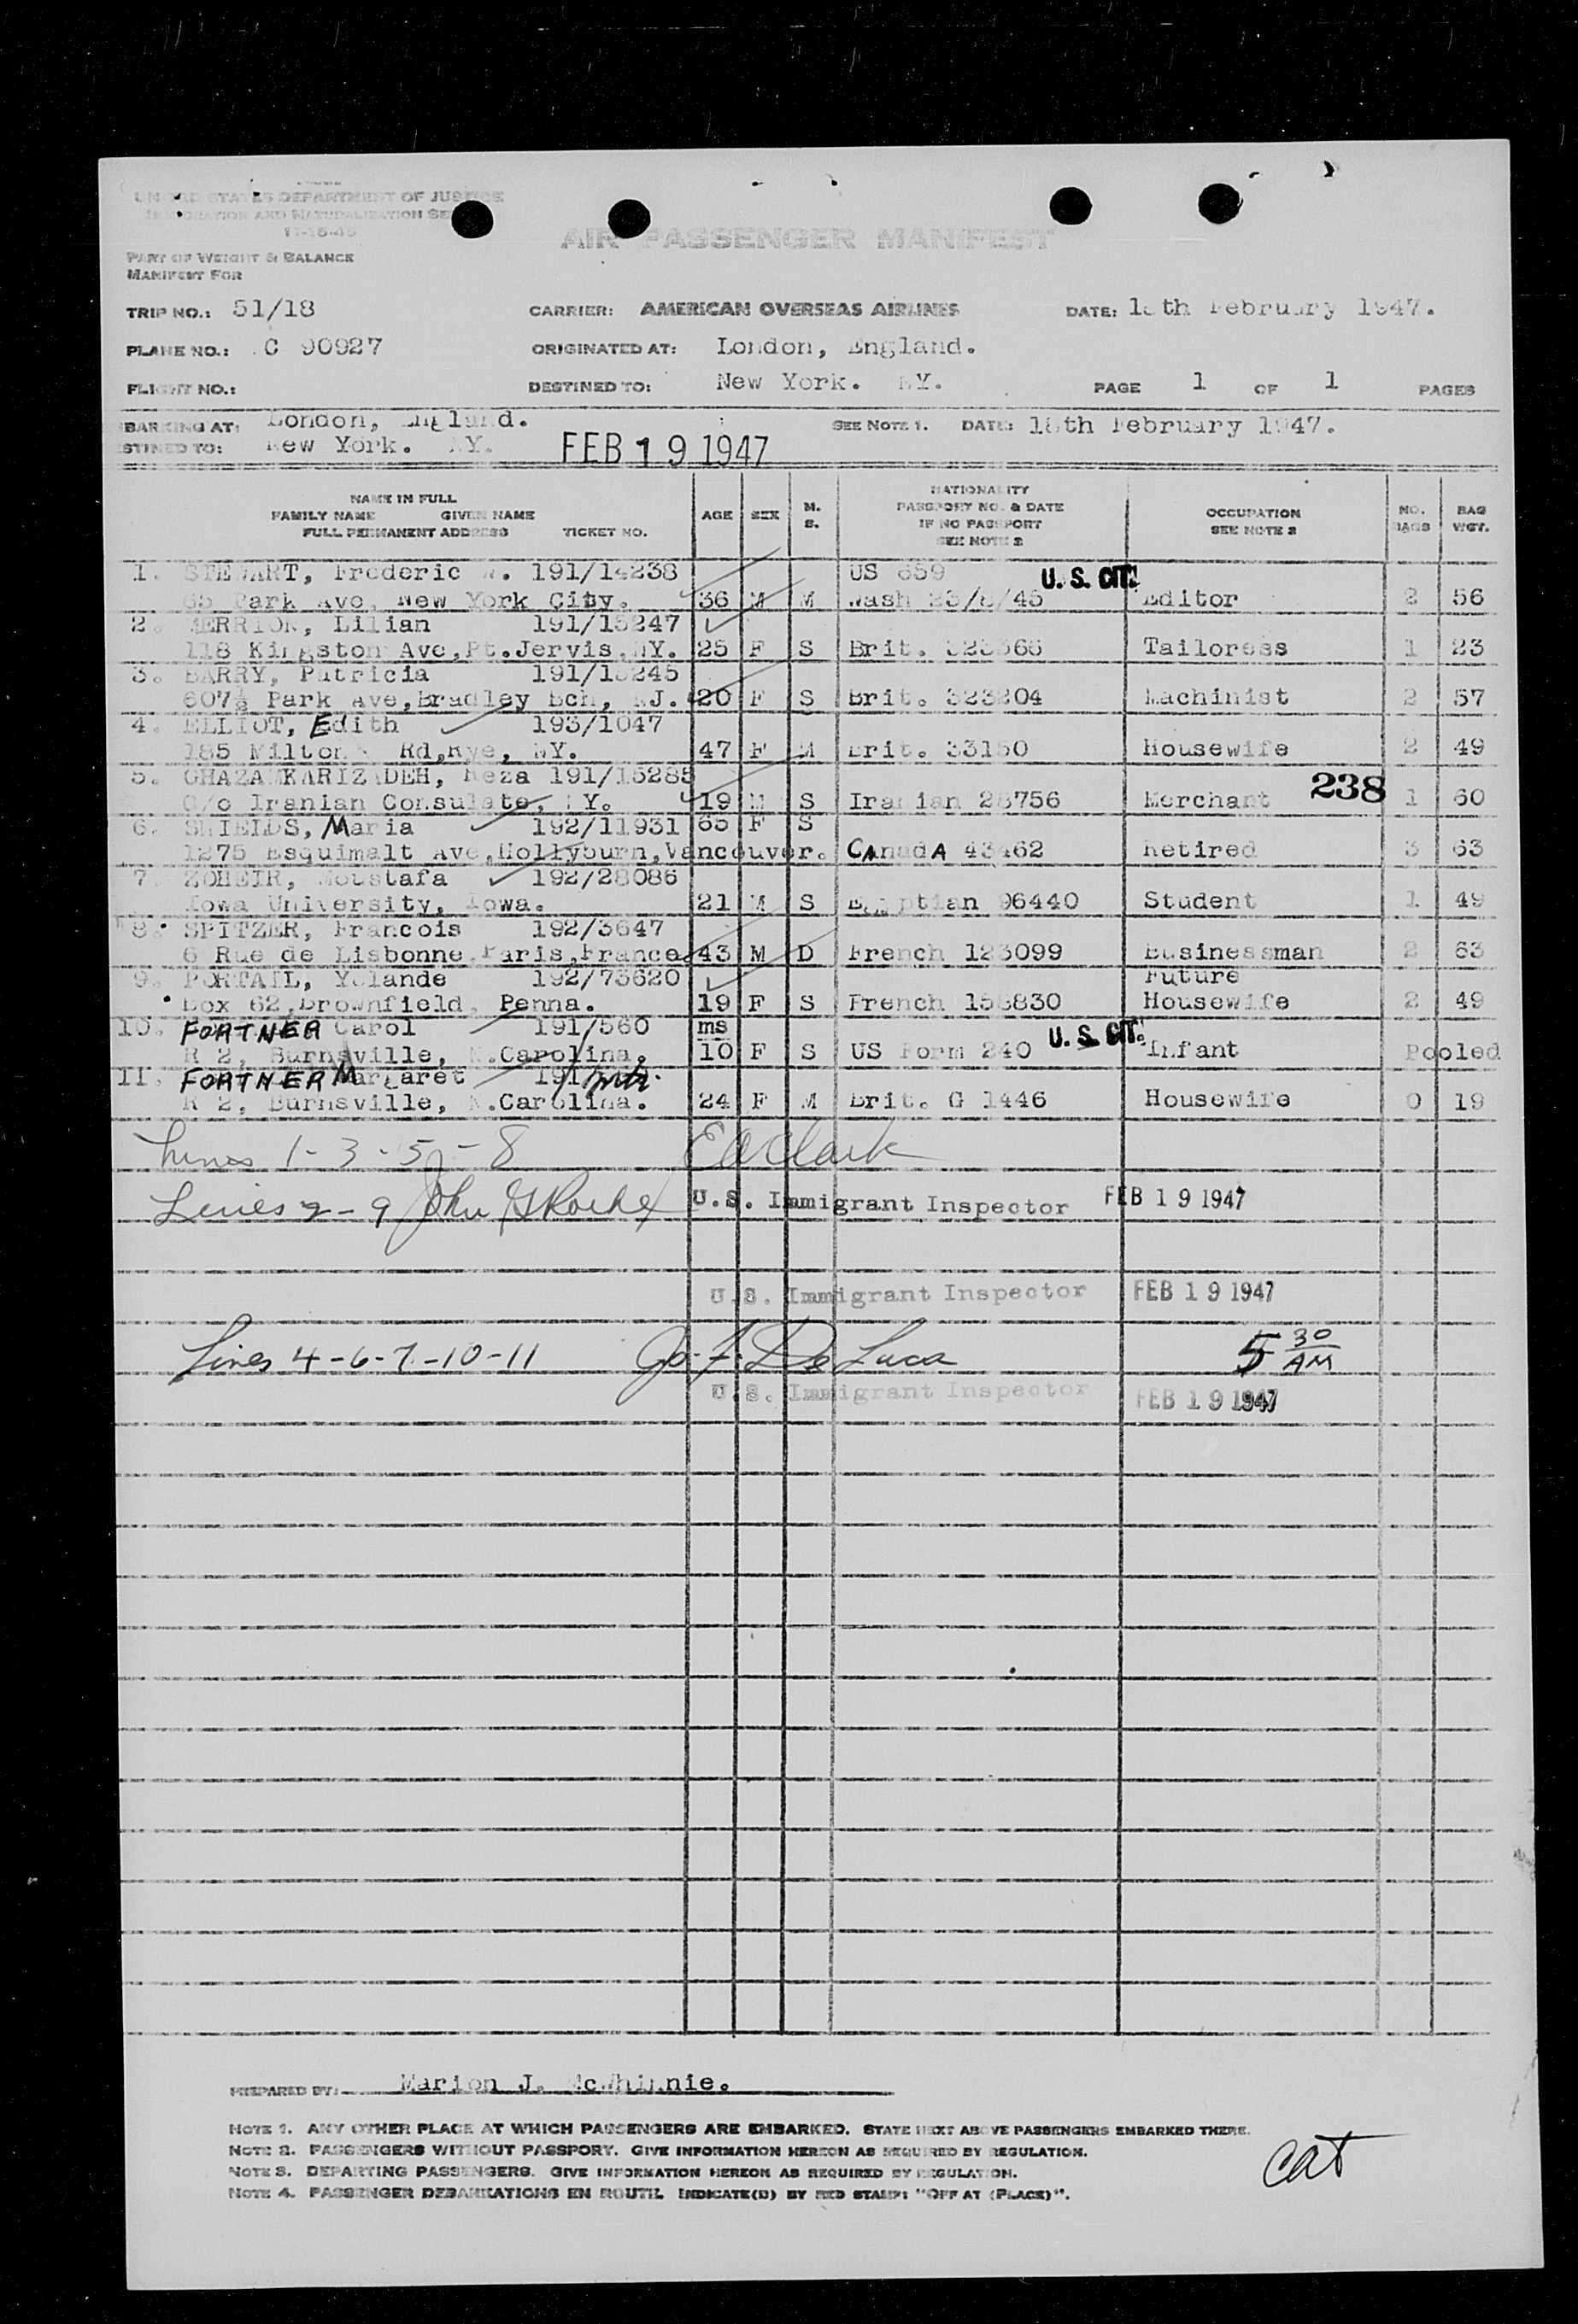 UNITED STATES DEPARTMENT OF JUSTICE
IMMIGRATION AND NATURALIZATION
11-18-45
AIR PASSENGER MANIFEST
PART OF WEIGHT & BALANCE
MANIFEST FOR
TRIP NO.: 51/18 CARRIER: AMERICAN OVERSEAS AIRLINES DATE: 18th February 1947.
PLANE NO.: C 90927 ORIGINATED AT: London, England.
FLIGHT NO.: DESTINED TO: New York. NY. PAGE 1 OF 1 PAGES
BARKING AT: London, England. SEE NOTE 1. DATE: 18th February 1947.
STINED TO: New York. NY. FEB 19 1947
NAME IN FULL
FAMILY NAME GIVEN NAME
FULL PERMANENT ADDRESS TICKET NO. AGE SEX M. S. NATIONALITY PASSPORT NO. & DATE IF NO PASSPORT SEE NOTE 2 OCCUPATION SEE NOTE 2 NO. BAGS BAG WGT.
1. STEWART, Frederic W. 191/14238 US 659 U.S. CIT.
65 Park Ave, New York City. 36 M M Wash 23/8/45 Editor 2 56
2. MERRION, Lilian 191/15247
118 Kingston Ave, Pt.Jervis, NY. 25 F S Brit. Tailoress 1 23
3. BARRY, Patricia 191/15245
607½ Park Ave, Bradley Bch, NJ. 20 F S Brit. 323204 Machinist 2 57
4. ELLIOT, Edith 193/1047
185 Milton Rd, Rye, NY. 47 F M Brit. 33150 Housewife 2 49
5. GHAZAMKARIZADEH, Reza 191/15285
C/o Iranian Consulate, NY. 19 M S Iranian 28756 Merchant 238 1 60
6. SHIELDS, Maria 192/11931 65 F S
1275 Esquimalt Ave, Hollyburn, Vancouver. CANADA 43462 Retired 3 63
7. ZOHEIR, Moustafa 192/28086
Iowa University, Iowa. 21 M S Egyptian 96440 Student 1 49
8. SPITZER, Francois 192/3647
6 Rue de Lisbonne, Paris, France 43 M D French 123099 Businessman 2 63
9. PORTAIL, Yolande 192/73620 Future
Box 62, Brownfield, Penna. 19 F S French 158830 Housewife 2 49
10. FORTNER Carol 191/560 ms U.S. CIT.
R 2, Burnsville, N.Carolina. 10 F S US Form 240 Infant Pooled
11. FORTNER Margaret 191/
R 2, Burnsville, N.Carolina. 24 F M Brit. G 1446 Housewife 0 19
Lines 1-3-5-8 EAClark
Lines 2-9 John U.S. Immigrant Inspector FEB 19 1947
U.S. Immigrant Inspector FEB 19 1947
Lines 4-6-7-10-11 Jo. F. De Luca 5 30 AM
U.S. Immigrant Inspector FEB 19 1947
PREPARED BY: Marion J. McWhinnie.
NOTE 1. ANY OTHER PLACE AT WHICH PASSENGERS ARE EMBARKED. STATE NEXT ABOVE PASSENGERS EMBARKED THERE.
NOTE 2. PASSENGERS WITHOUT PASSPORT. GIVE INFORMATION HEREON AS REQUIRED BY REGULATION.
NOTE 3. DEPARTING PASSENGERS. GIVE INFORMATION HEREON AS REQUIRED BY REGULATION.
NOTE 4. PASSENGER DEBARKATIONS EN ROUTE. INDICATE(D) BY RED STAMP: "OFF AT (PLACE)".
cat